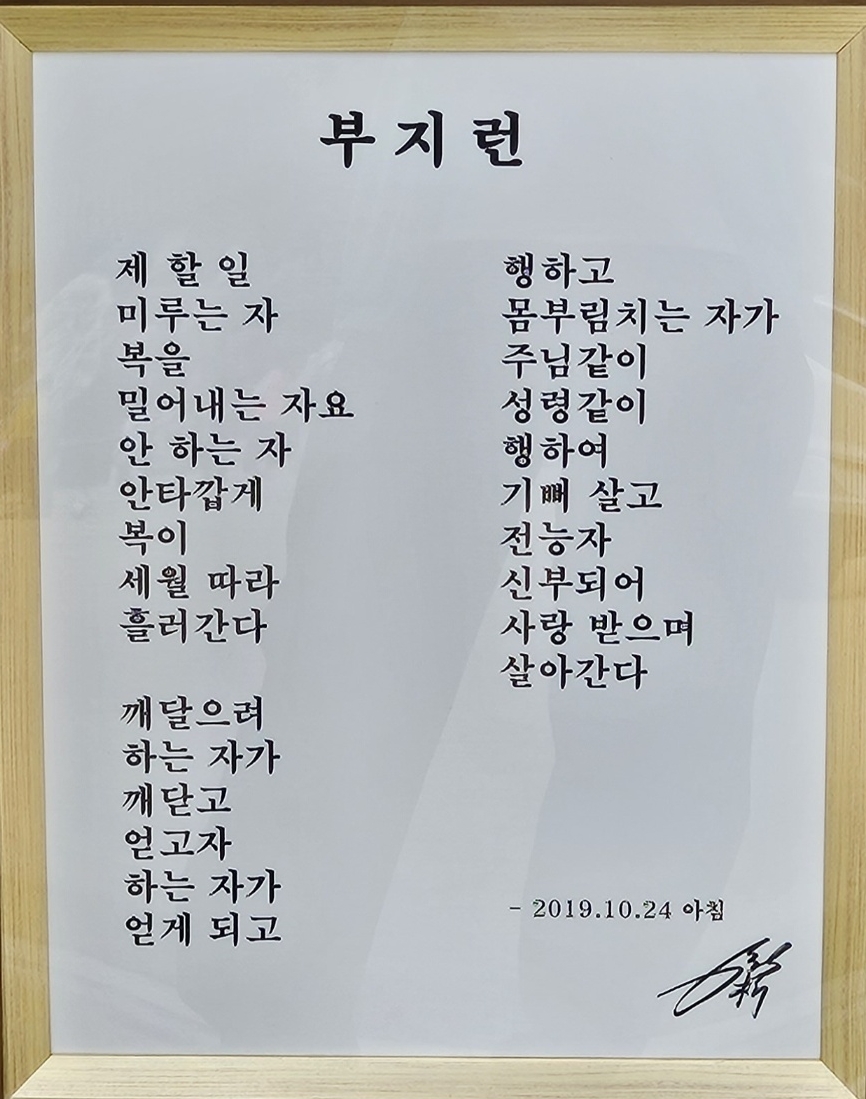 부지런
제 할 일
미루는 자
복을
밀어내는 자요
안 하는 자
안타깝게
복이
세월 따라
흘러간다
깨달으려
하는 자가
깨닫고
얻고자
하는 자가
얻게 되고
행하고
몸부림치는 자가
주님같이
성령같이
행하여
기뻐 살고
전능자
신부되어
사랑 받으며
살아간다
- 2019.10.24 아침